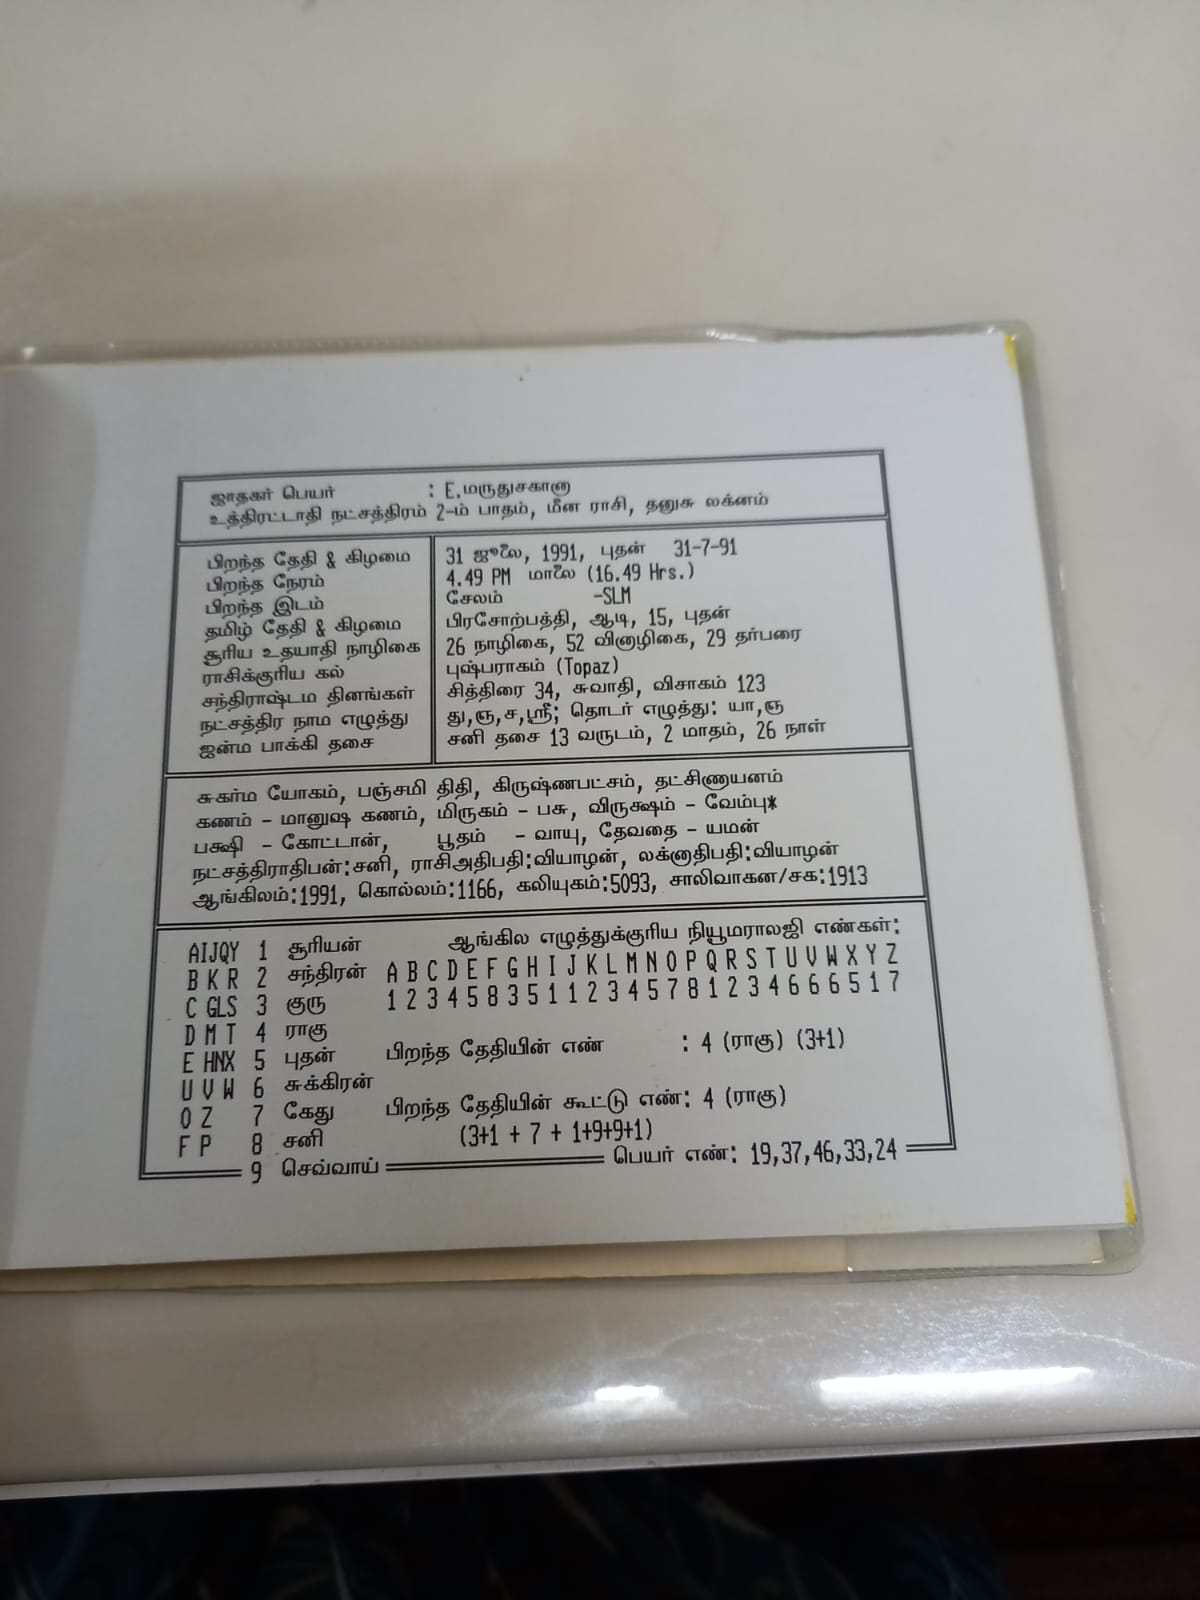 ஜாதகர் பெயர் : E.மருதுசகானு
உத்திரட்டாதி நட்சத்திரம் 2-ம் பாதம், மீன ராசி, தனுசு லக்னம்
பிறந்த தேதி & கிழமை 31 ஜூலை, 1991, புதன் 31-7-91
பிறந்த நேரம் 4.49 PM மாலை (16.49 Hrs.)
பிறந்த இடம் சேலம் -SLM
தமிழ் தேதி & கிழமை பிரசோற்பத்தி, ஆடி, 15, புதன்
சூரிய உதயாதி நாழிகை 26 நாழிகை, 52 வினாழிகை, 29 தர்பரை
ராசிக்குரிய கல் புஷ்பராகம் (Topaz)
சந்திராஷ்டம தினங்கள் சித்திரை 34, சுவாதி, விசாகம் 123
நட்சத்திர நாம எழுத்து து,ஞ,ச,ஸ்ரீ; தொடர் எழுத்து: யா,ஞ
ஜன்ம பாக்கி தசை சனி தசை 13 வருடம், 2 மாதம், 26 நாள்
சுகர்ம யோகம், பஞ்சமி திதி, கிருஷ்ணபட்சம், தட்சிணாயனம்
கணம் - மானுஷ கணம், மிருகம் - பசு, விருக்ஷம் - வேம்பு*
பக்ஷி - கோட்டான், பூதம் - வாயு, தேவதை - யமன்
நட்சத்திராதிபன்:சனி, ராசிஅதிபதி:வியாழன், லக்னாதிபதி:வியாழன்
ஆங்கிலம்:1991, கொல்லம்:1166, கலியுகம்:5093, சாலிவாகன/சக:1913
AIJQY 1 சூரியன் ஆங்கில எழுத்துக்குரிய நியூமராலஜி எண்கள்:
B K R 2 சந்திரன் A B C D E F G H I J K L M N O P Q R S T U V W X Y Z
C GLS 3 குரு 1 2 3 4 5 8 3 5 1 1 2 3 4 5 7 8 1 2 3 4 6 6 6 5 1 7
D M T 4 ராகு
E HNX 5 புதன் பிறந்த தேதியின் எண் : 4 (ராகு) (3+1)
U V W 6 சுக்கிரன்
O Z 7 கேது பிறந்த தேதியின் கூட்டு எண்: 4 (ராகு)
F P 8 சனி (3+1 + 7 + 1+9+9+1)
9 செவ்வாய் பெயர் எண்: 19,37,46,33,24